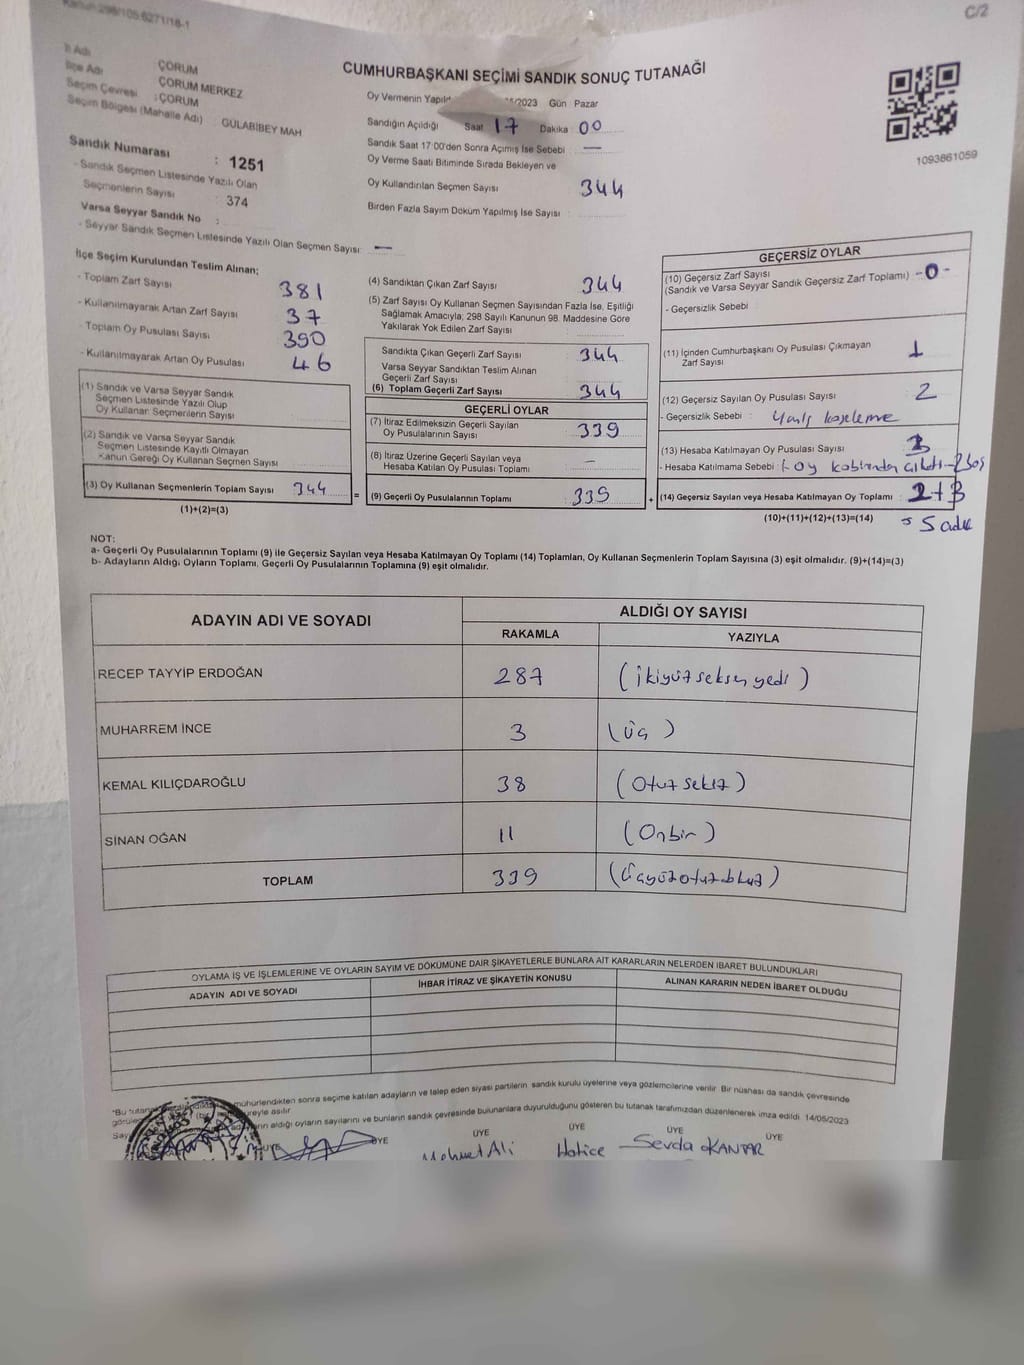 Kanun:298/105.6271/18-1
C/2
İl Adı : ÇORUM
İlçe Adı : ÇORUM MERKEZ
Seçim Çevresi : ÇORUM
Seçim Bölgesi (Mahalle Adı) : GÜLABİBEY MAH
Sandık Numarası : 1251
- Sandık Seçmen Listesinde Yazılı Olan
Seçmenlerin Sayısı : 374
Varsa Seyyar Sandık No :
- Seyyar Sandık Seçmen Listesinde Yazılı Olan Seçmen Sayısı: —
CUMHURBAŞKANI SEÇİMİ SANDIK SONUÇ TUTANAĞI
Oy Vermenin Yapıldı /2023 Gün Pazar
Sandığın Açıldığı Saat 17 Dakika 00
Sandık Saat 17:00'den Sonra Açımış İse Sebebi : —
Oy Verme Saati Bitiminde Sırada Bekleyen ve
Oy Kullandırılan Seçmen Sayısı : 344
Birden Fazla Sayım Döküm Yapılmış İse Sayısı :
1093861059
İlçe Seçim Kurulundan Teslim Alınan;
- Toplam Zarf Sayısı : 381
- Kullanılmayarak Artan Zarf Sayısı : 37
- Toplam Oy Pusulası Sayısı : 390
- Kullanılmayarak Artan Oy Pusulası : 46
(1) Sandık ve Varsa Seyyar Sandık
Seçmen Listesinde Yazılı Olup
Oy Kullanan Seçmenlerin Sayısı :
(2) Sandık ve Varsa Seyyar Sandık
Seçmen Listesinde Kayıtlı Olmayan
Kanun Gereği Oy Kullanan Seçmen Sayısı :
(3) Oy Kullanan Seçmenlerin Toplam Sayısı : 344 =
(1)+(2)=(3)
(4) Sandıktan Çıkan Zarf Sayısı : 344
(5) Zarf Sayısı Oy Kullanan Seçmen Sayısından Fazla İse, Eşitliği
Sağlamak Amacıyla; 298 Sayılı Kanunun 98. Maddesine Göre
Yakılarak Yok Edilen Zarf Sayısı :
Sandıkta Çıkan Geçerli Zarf Sayısı : 344
Varsa Seyyar Sandıktan Teslim Alınan
Geçerli Zarf Sayısı :
(6) Toplam Geçerli Zarf Sayısı : 344
GEÇERLİ OYLAR
(7) İtiraz Edilmeksizin Geçerli Sayılan
Oy Pusulalarının Sayısı : 339
(8) İtiraz Üzerine Geçerli Sayılan veya
Hesaba Katılan Oy Pusulası Toplamı : –
(9) Geçerli Oy Pusulalarının Toplamı : 339 +
GEÇERSİZ OYLAR
(10) Geçersiz Zarf Sayısı
(Sandık ve Varsa Seyyar Sandık Geçersiz Zarf Toplamı) : - 0 -
- Geçersizlik Sebebi :
(11) İçinden Cumhurbaşkanı Oy Pusulası Çıkmayan
Zarf Sayısı : 1
(12) Geçersiz Sayılan Oy Pusulası Sayısı : 2
- Geçersizlik Sebebi : Yanlış kaşeleme
(13) Hesaba Katılmayan Oy Pusulası Sayısı :
- Hesaba Katılmama Sebebi : 1 oy kabinden çıktı - 2 boş
(14) Geçersiz Sayılan veya Hesaba Katılmayan Oy Toplamı : 2+3
(10)+(11)+(12)+(13)=(14) = 5 adet
NOT:
a- Geçerli Oy Pusulalarının Toplamı (9) ile Geçersiz Sayılan veya Hesaba Katılmayan Oy Toplamı (14) Toplamları, Oy Kullanan Seçmenlerin Toplam Sayısına (3) eşit olmalıdır. (9)+(14)=(3)
b- Adayların Aldığı Oyların Toplamı, Geçerli Oy Pusulalarının Toplamına (9) eşit olmalıdır.
ADAYIN ADI VE SOYADI ALDIĞI OY SAYISI
RAKAMLA YAZIYLA
RECEP TAYYİP ERDOĞAN 287 (ikiyüz seksen yedi)
MUHARREM İNCE 3 (üç)
KEMAL KILIÇDAROĞLU 38 (Otuz sekiz)
SİNAN OĞAN 11 (Onbir)
TOPLAM 339 (üçyüzotuzdokuz)
OYLAMA İŞ VE İŞLEMLERİNE VE OYLARIN SAYIM VE DÖKÜMÜNE DAİR ŞİKAYETLERLE BUNLARA AİT KARARLARIN NELERDEN İBARET BULUNDUKLARI
ADAYIN ADI VE SOYADI İHBAR İTİRAZ VE ŞİKAYETİN KONUSU ALINAN KARARIN NEDEN İBARET OLDUĞU
mühürlendikten sonra seçime katılan adayların ve talep eden siyasi partilerin sandık kurulu üyelerine veya gözlemcilerine verilir. Bir nüshası da sandık çevresinde
süreyle asılır.
aldığı oyların sayılarını ve bunların sandık çevresinde bulunanlara duyurulduğunu gösteren bu tutanak tarafımızdan düzenlenerek imza edildi. 14/05/2023
ÜYE ÜYE ÜYE ÜYE ÜYE ÜYE
Mehmet Ali Hatice Sevda OKANTAR